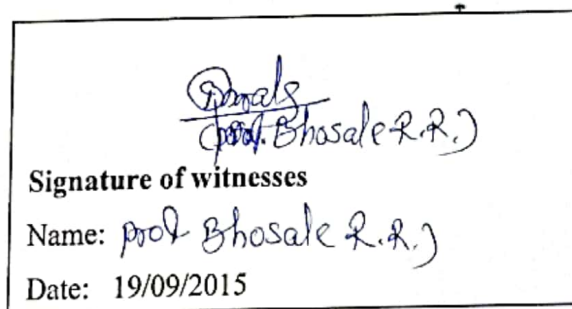 (Prof. Bhosale R.R.)
Signature of witnesses
Name: Prof Bhosale R.R.)
Date: 19/09/2015